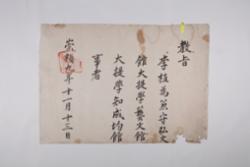 教旨
李植爲兼守弘文
館大提學藝文館
大提學知成均館
事者
崇禎九年十一月十三日